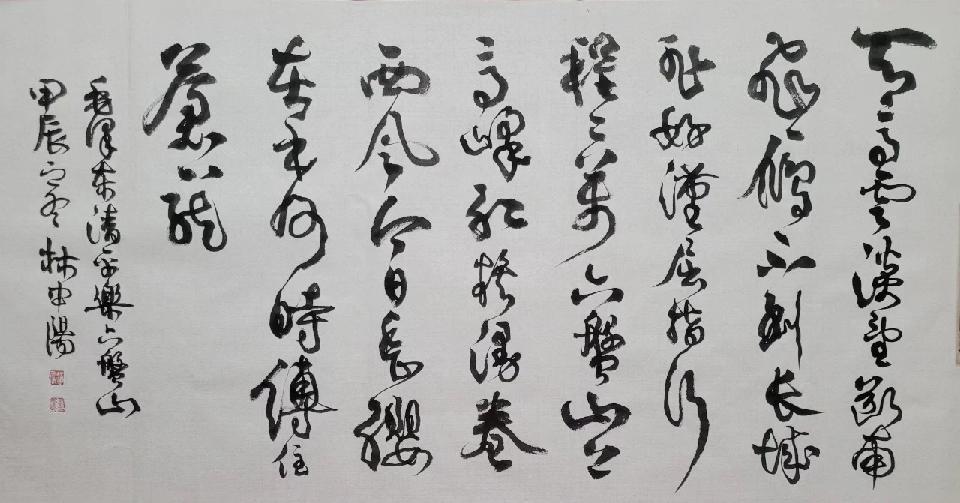 天高雲淡望斷南
飛鴈不到长城
非好漢屈指行
程二萬六盤山上
高峰紅旗漫卷
西風今日長纓
在手何時縛住
蒼龍
毛澤東清平樂六盤山
甲辰之冬林申陽